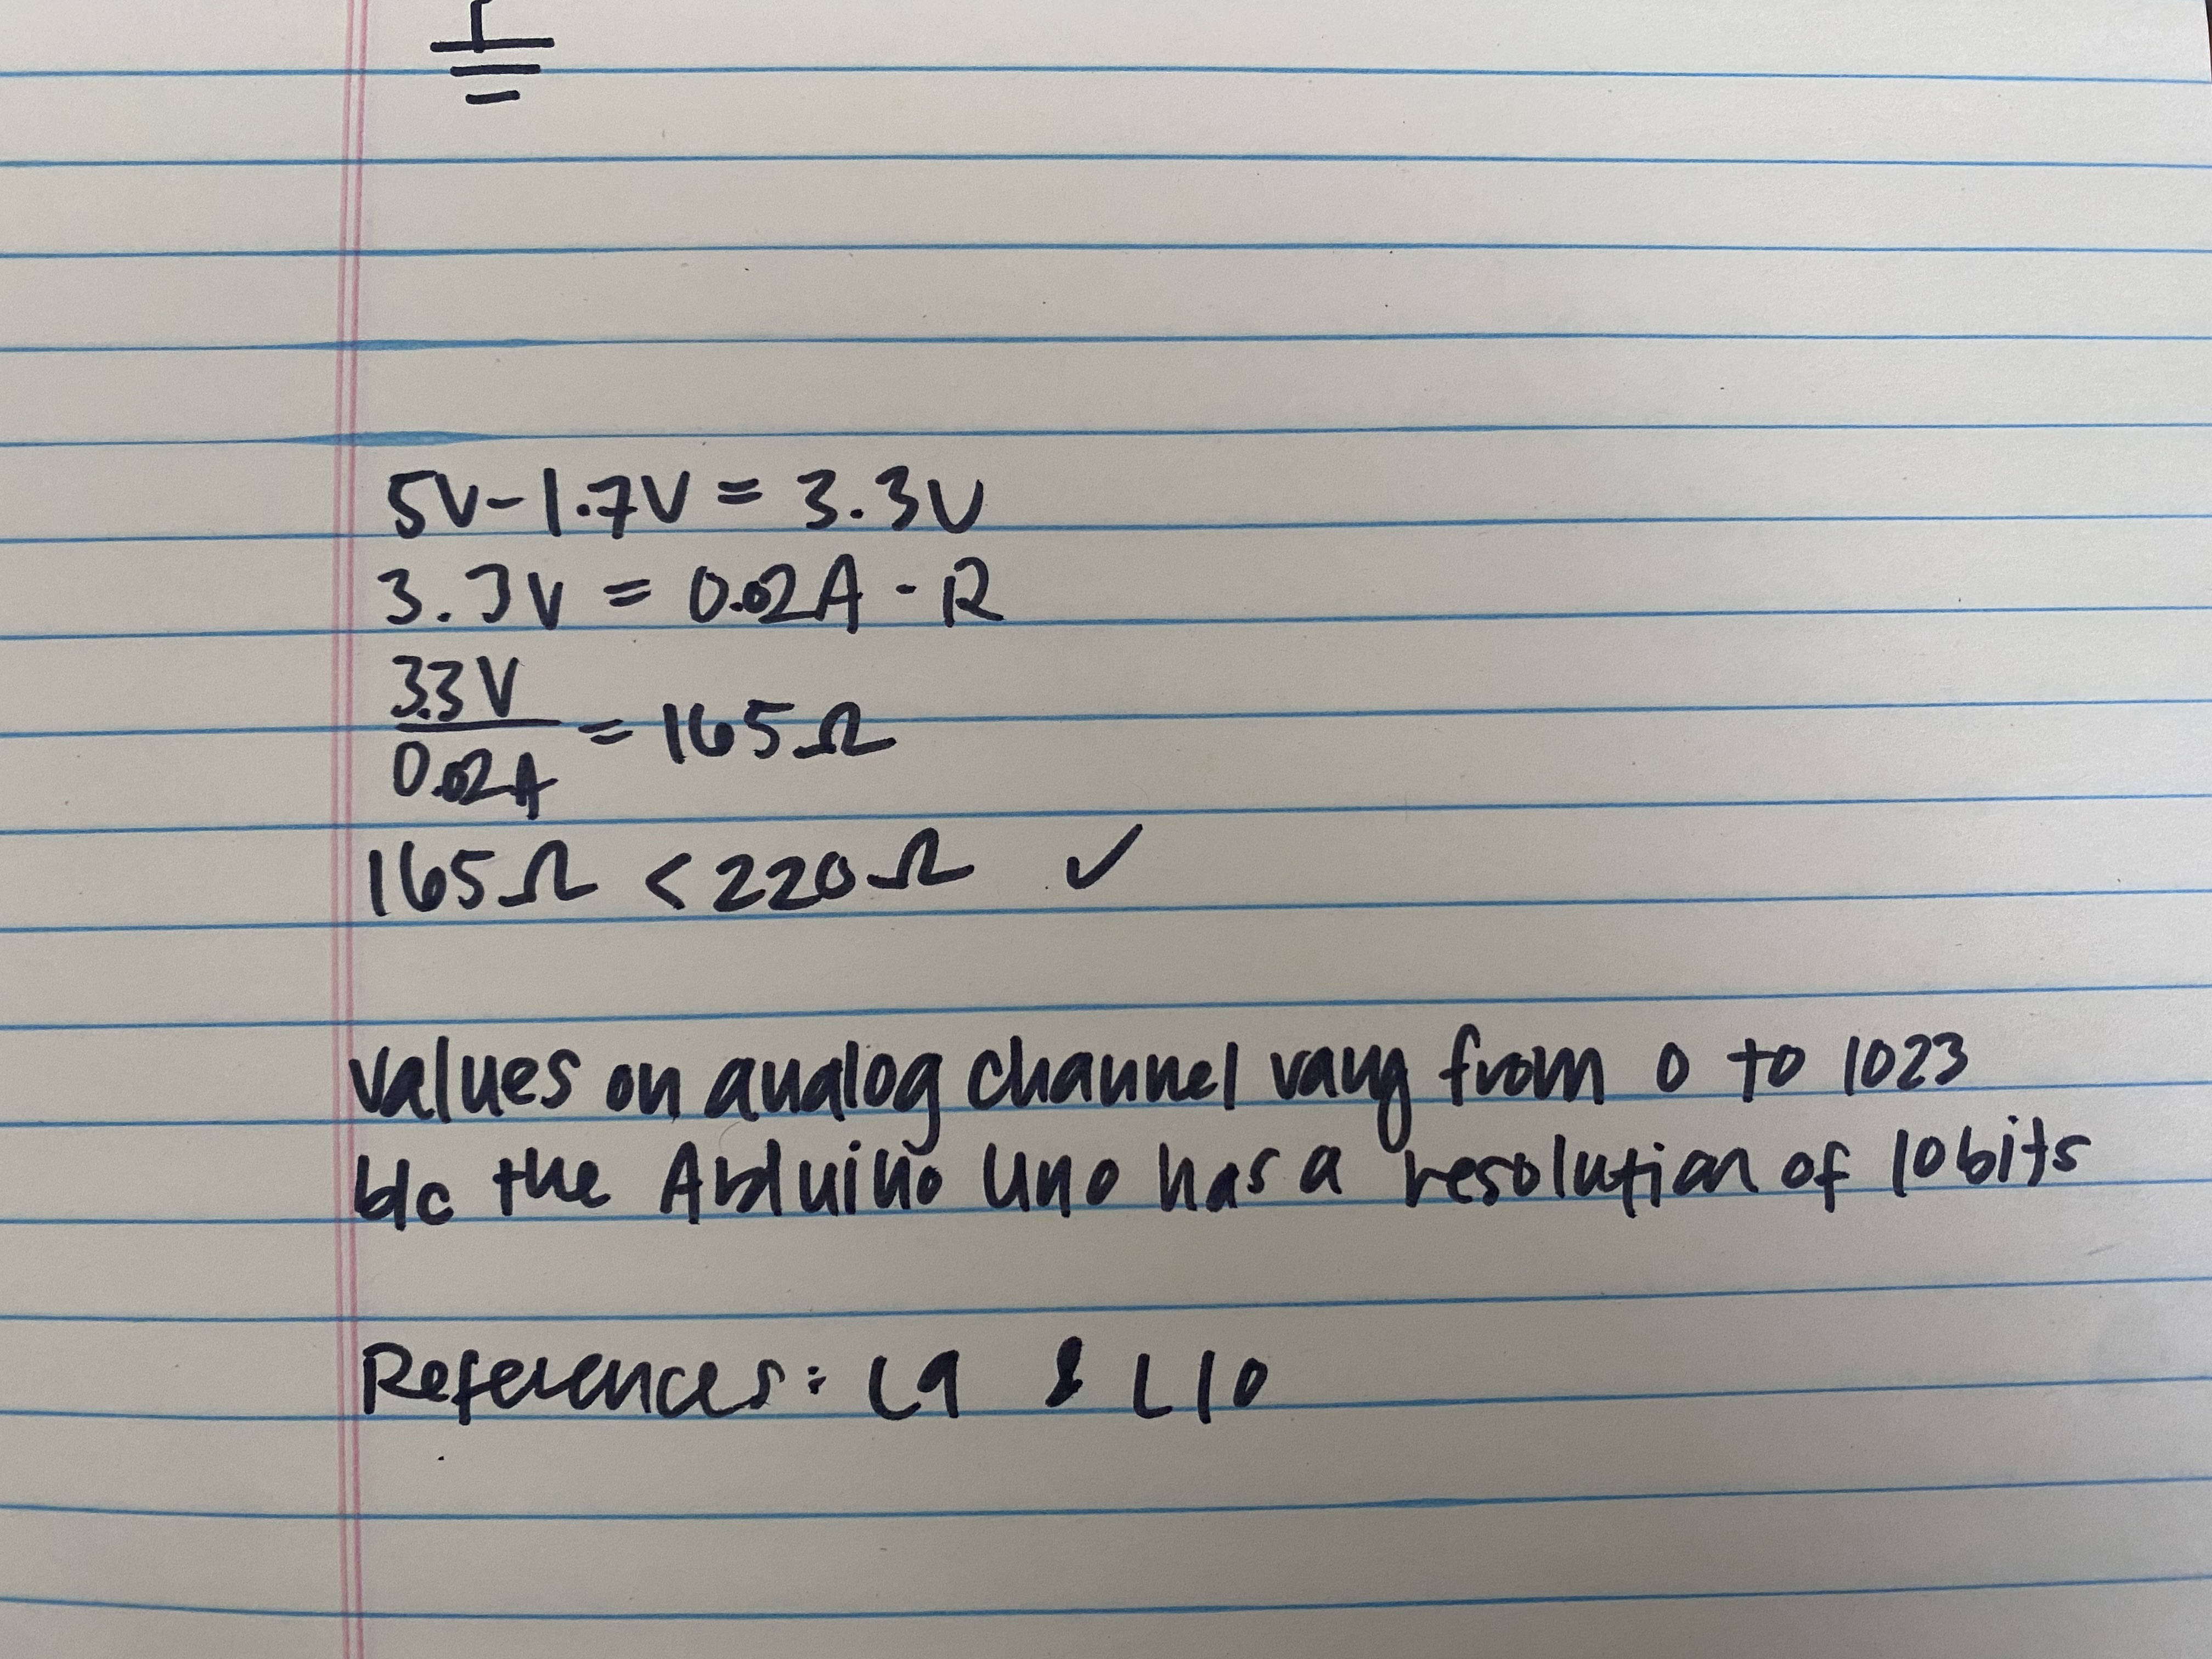 5V-1.7V = 3.3V
3.3V = 0.02A · R
3.3V
0.02A = 165Ω
165Ω < 220Ω ✓
values on analog channel vary from 0 to 1023
b/c the Arduino Uno has a resolution of 10 bits
References: L9 & L10